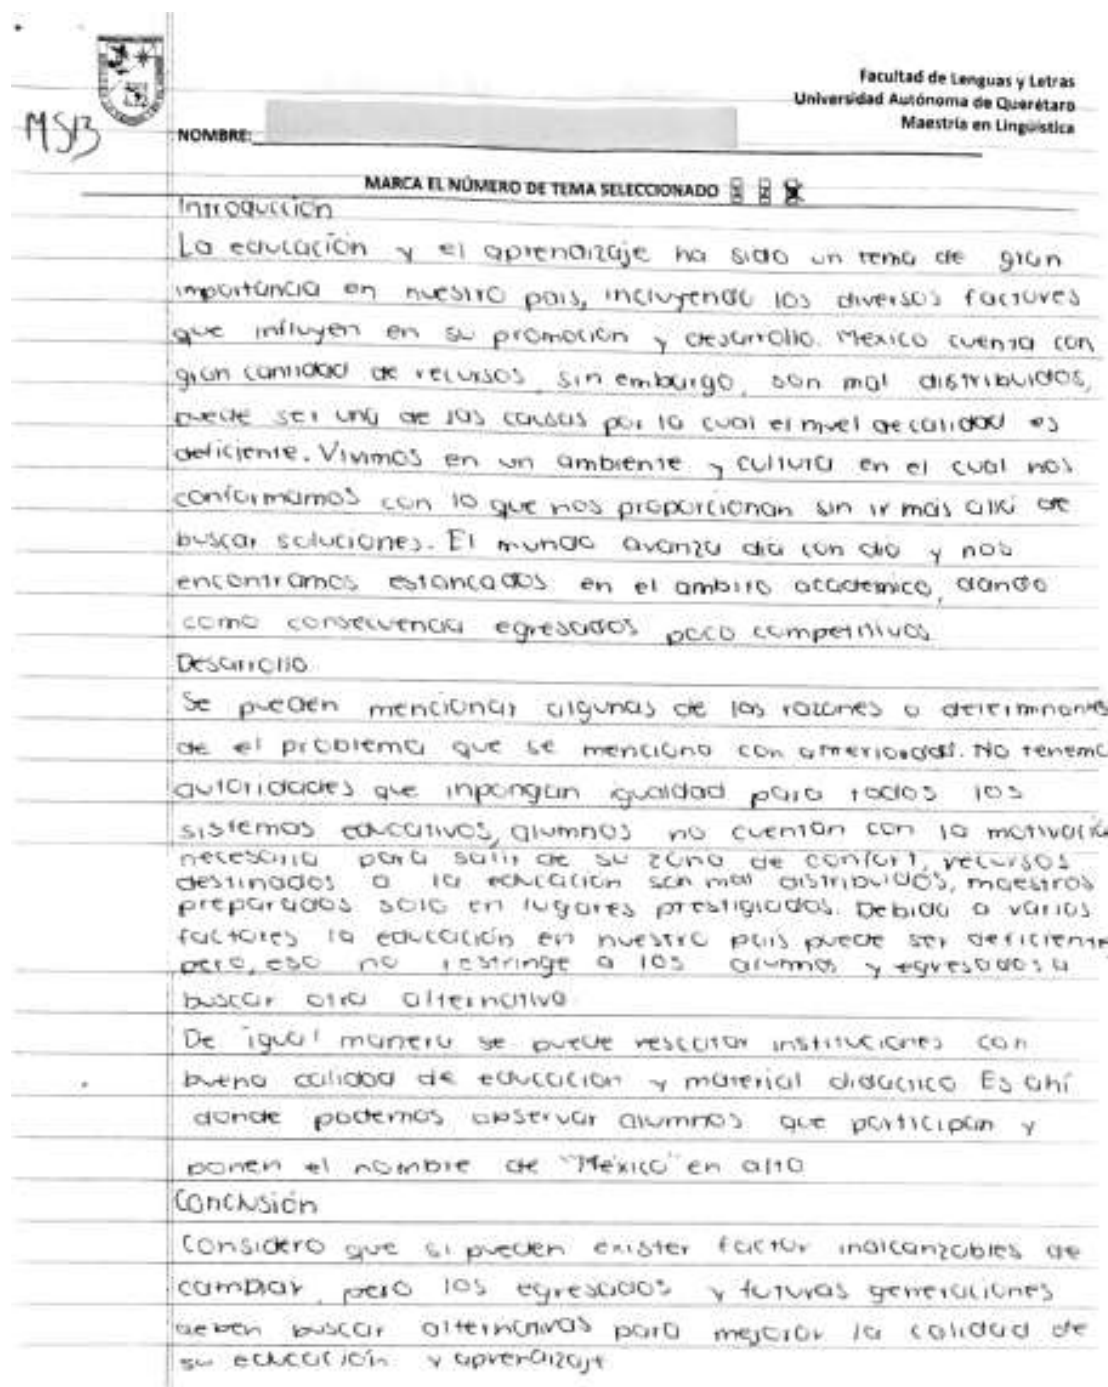 Facultad de Lenguas y Letras
Universidad Autónoma de Querétaro
Maestría en Lingüística
MS13
NOMBRE:
MARCA EL NÚMERO DE TEMA SELECCIONADO
Introducción
La educación y el aprendizaje ha sido un tema de gran
importancia en nuestro pais, incluyendo los diversos factores
que influyen en su promoción y desarrollo. Mexico cuenta con
gran cantidad de recursos, sin embargo, son mal distribuidos,
puede ser una de las causas por la cual el nivel de calidad es
deficiente. Vivimos en un ambiente y cultura en el cual nos
conformamos con lo que nos proporcionan sin ir mas allá de
buscar soluciones. El mundo avanza dia con dia y nos
encontramos estancados en el ambito academico, dando
como consecuencia egresados poco competitivos
Desarrollo
Se pueden mencionar algunas de las razones o determinantes
de el problema que se menciono con anterioridad. No tenemo
autoridades que inpongan igualdad para todos los
sistemas educativos, alumnos no cuentan con la motivació
necesaria para salir de su zona de confort, recursos
destinados a la educación son mal distribuidos, maestros
preparados solo en lugares prestigiados. Debido a varios
factores la educación en nuestro pais puede ser deficiente
pero, eso no restringe a los alumnos y egresados a
buscar otra alternativa
De igual manera se puede rescatar instituciones con
buena calidad de educación y material didáctico Es ahí
donde podemos observar alumnos que participan y
ponen el nombre de "México" en alto
Conclusión
Considero que si pueden exister factor inalcanzables de
cambiar, pero los egresados y futuras generaciones
deben buscar alternativas para mejorar la calidad de
su educación y aprendizaje